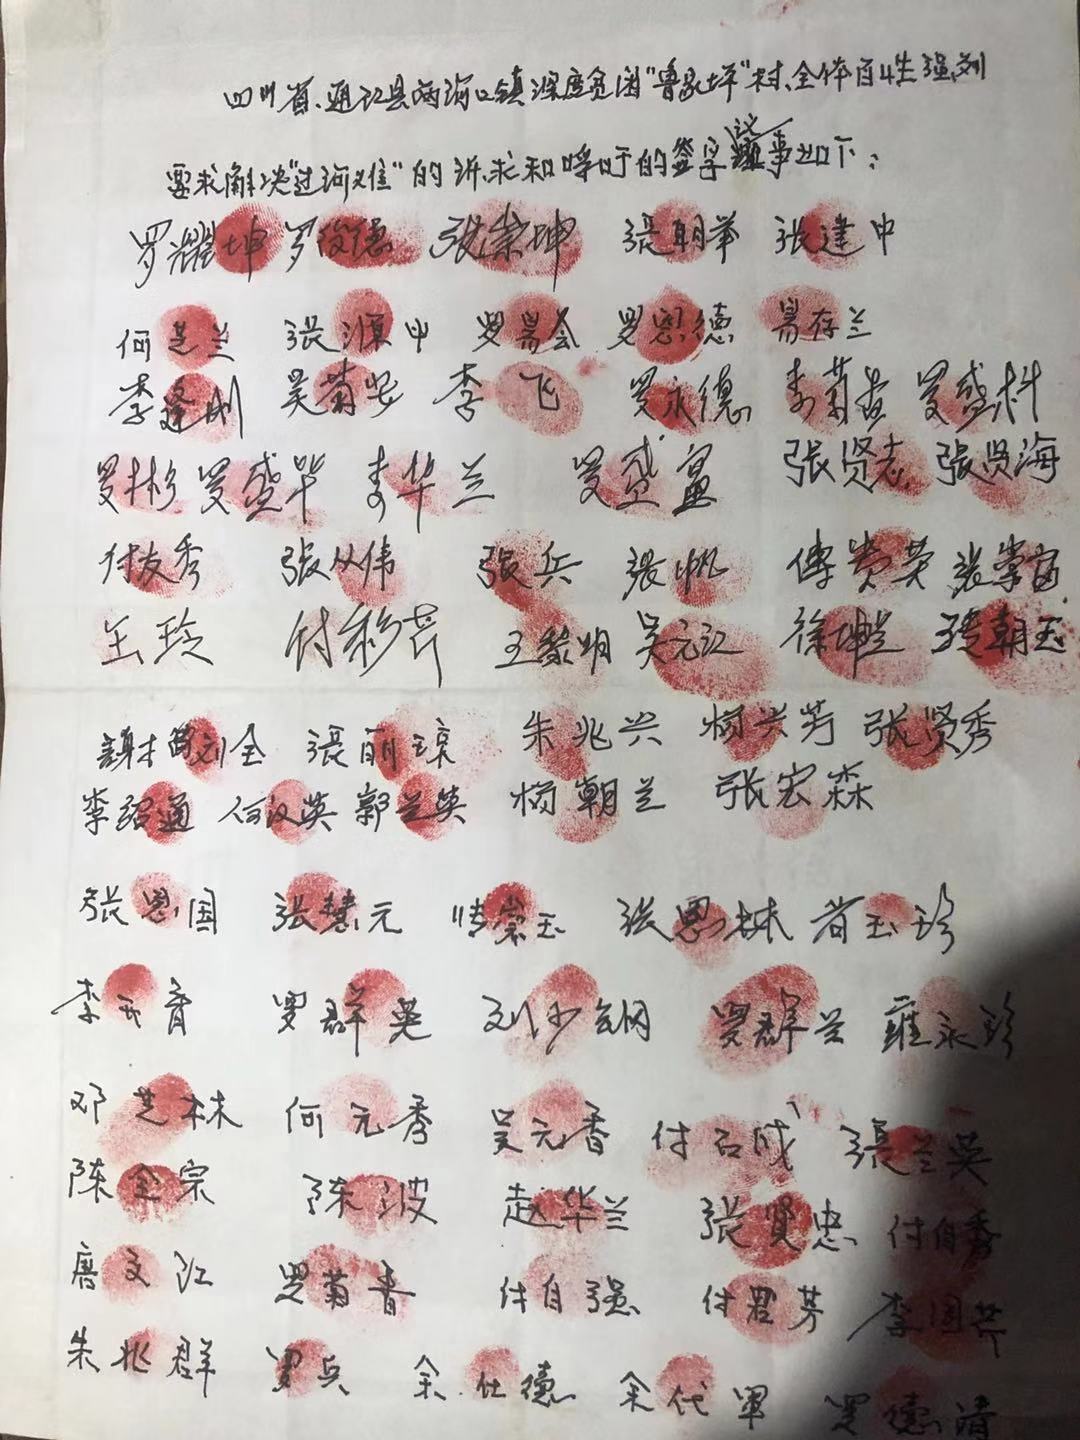 四川省、通江县两河口镇深度贫困"鲁家坪"村、全体百姓强烈
要求解决"过河难"的诉求和呼吁的签字议事如下：
罗耀坤 罗俊德 张崇坤 張朝举 张建中
何芝兰 张顺中 罗易会 罗恩德 易存兰
李逢刚 吴菊安 李飞 罗永德 李菊贵 罗盛科
罗彬 罗盛华 李华兰 罗盛富 张贤志 張贤海
付友秀 張从伟 张兵 張帆 傅贵英 张掌富
王玲 付彩芹 王黎明 吴元江 徐坤兰 張朝玉
刘全 張丽琼 朱兆兴 杨兴芳 张贤秀
李绍通 何汉英 郭兰英 杨朝兰 张宏森
张恩国 张慧元 崇玉 张恩林 苟玉珍
李元香 罗群英 刘少钢 罗群兰 雍永珍
邓芝林 何元秀 吴元香 付石成 張兰英
陈全宗 陈波 赵华兰 张贤忠 付自秀
唐文江 罗菊香 付自强 付君芳 李国芹
朱兆群 罗兵 余仕德 余代军 罗德清